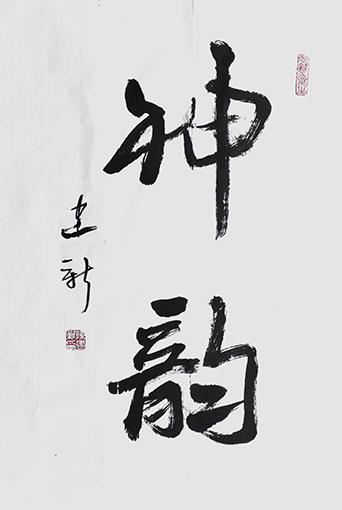 神韵
建新